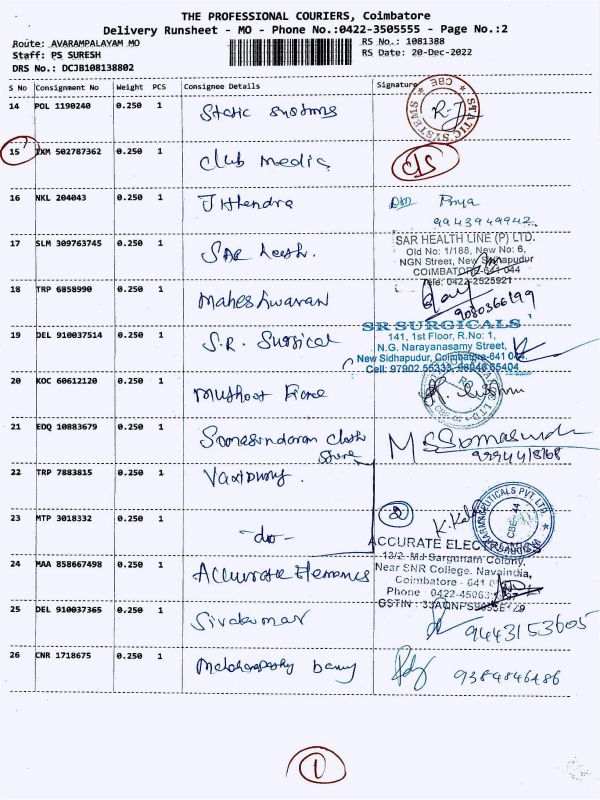 THE PROFESSIONAL COURIERS, Coimbatore
Delivery Runsheet - MO - Phone No.:0422-3505555 - Page No.:2
Route: AVARAMPALAYAM MO RS No.: 1081388
Staff: PS SURESH RS Date: 20-Dec-2022
DRS No.: DCJB108138802
S No Consignment No Weight PCS Consignee Details Signature
14 POL 1190240 0.250 1 Static systems
STATIC SYSTEMS CBE
15 IXM 502787362 0.250 1 Club media
16 NKL 204043 0.250 1 Jittendra Priya
9943949942
17 SLM 309763745 0.250 1
SAR HEALTH LINE (P) LTD.
Old No: 1/188, New No: 6,
NGN Street, New Sidhapudur
COIMBATORE-641 044
Tele: 0422-2525921
18 TRP 6858990 0.250 1 Maheshwaran
9080366199
19 DEL 910037514 0.250 1 S.R. Surgical
SR SURGICALS
141, 1st Floor, R.No: 1,
N.G. Narayanasamy Street,
New Sidhapudur, Coimbatore-641 044
Cell: 97902 55333, 98040 65404
20 KOC 60612120 0.250 1 Muthoot
21 EDQ 10883679 0.250 1 Somasundaram Cloth
Store
22 TRP 7883815 0.250 1
23 MTP 3018332 0.250 1 -do- 2 K. Kala
24 MAA 858667498 0.250 1 Accurate
ACCURATE ELECTRONICS
Sargunam Colony,
Near SNR College, Navaindia,
Coimbatore - 641
Phone : 0422-45063
GSTIN :
25 DEL 910037365 0.250 1 Sivakumar 9443153605
26 CNR 1718675 0.250 1 9384846486
1